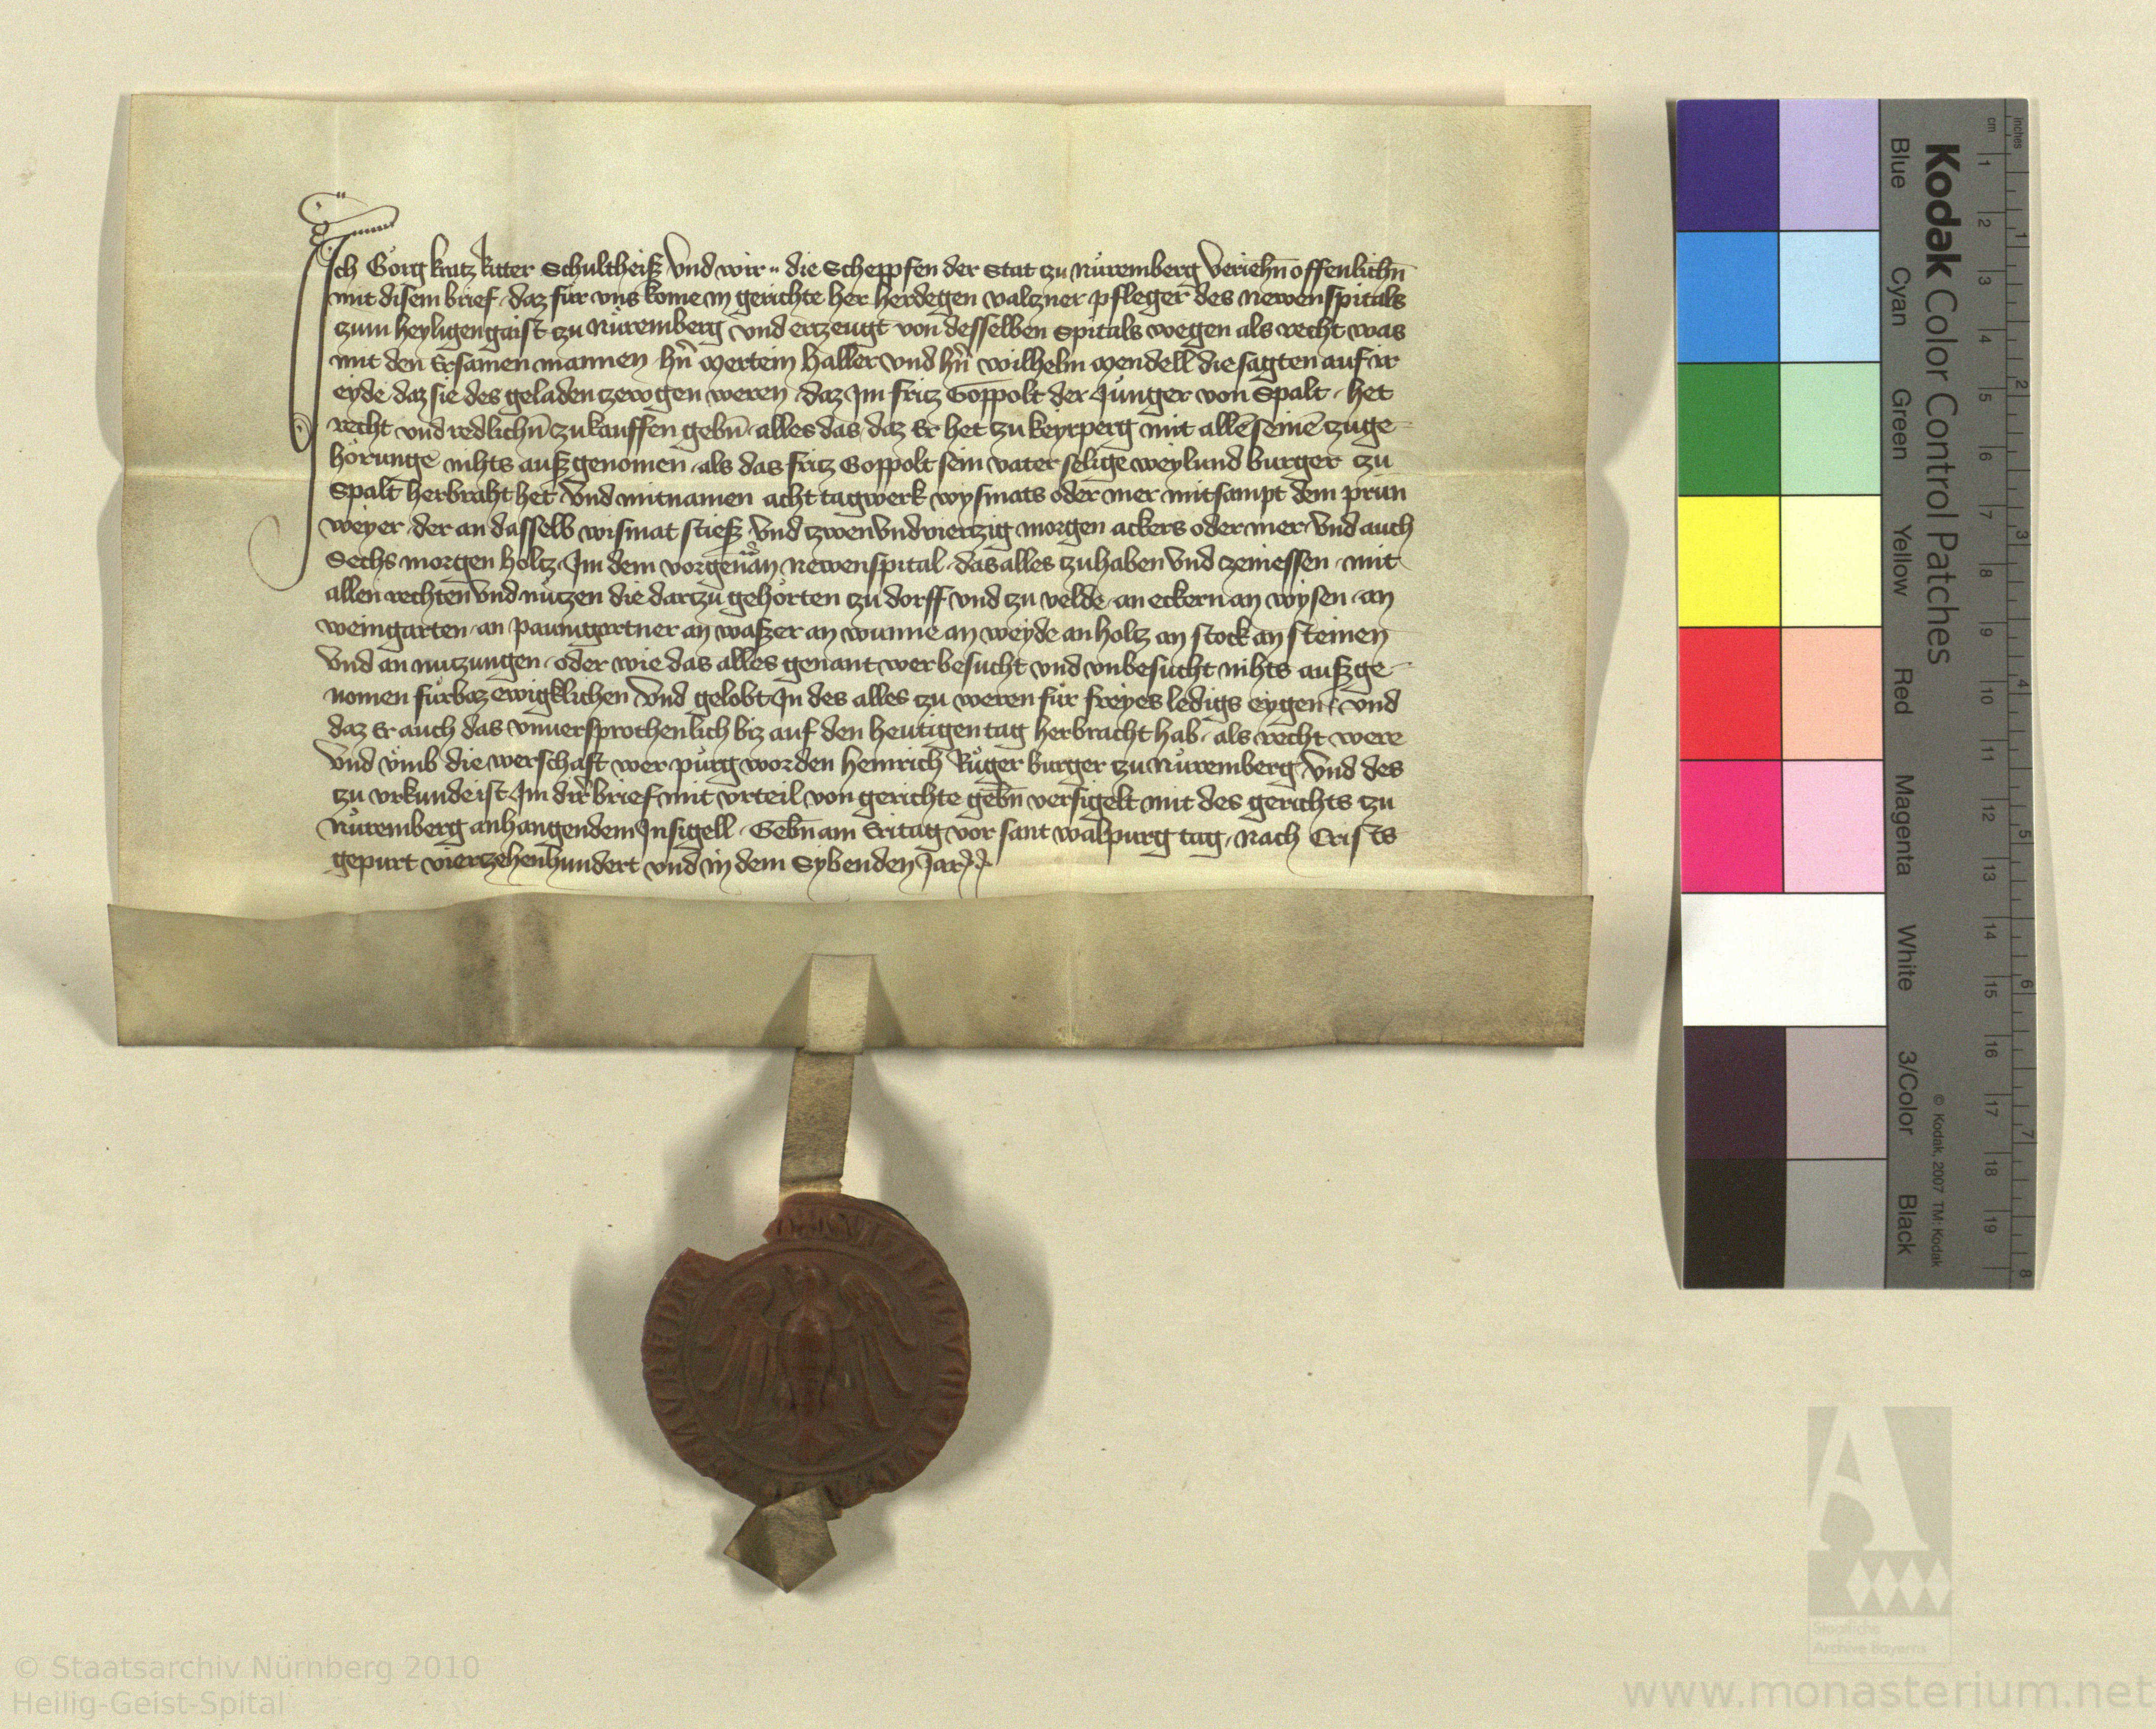 Ich Görg kratz Ritter Schultheiß Vnd wir ·· die Scheppfen der Stat zu Nůremberg Veriehn̄ offenlichn̄
mit disem brief · daz für vns kome in gerichte her herdegen valczner pfleger des Newenspitals
czum heyligengaist zu Nůremberg vnd erzeugt von desselben Spitals wegen als recht was
mit den Ersamen mannen · hn̄ Mertein Haller vnd hn̄ Wilhelm Mendell die sagten auf ir
eyde daz sie des geladen czewgen weren · daz Im fricz Goppolt der Jünger von Spalt · het
recht vnd redlichn̄ zukauffen gebn̄ · alles das daz Er het zu keyrperg mit allē seinē zuge-
hörungē nihts außgenomen · als das fricz Goppolt sein vater seligē weylund burger czu
Spalt herbraht het Vnd mitnamen acht tagwerk wysmats oder mer mitsampt dem prun
weyer · der an dasselb wismat stieß Vnd czwenvndviertzig morgen ackers oder mer Vnd auch
Sechs morgen holtz · Im dem vorgenan̄ Newenspital · das alles zuhaben vnd zeniessen · mit
allen rechten vnd nützen die darzu gehörten zu dorff vnd zu velde · an eckern an wysen · an
weingarten · an paumgartner an waßer an wunne an weyde an holtz an stock an steinen
Vnd an nutzungen · oder wie das alles genant wer besucht vnd vnbesucht nihts außge-
nomen fürbaz ewigklichen Vnd gelobt In des alles zu weren für freyes ledigs eygen · vnd
daz Er auch das vnuersprochenlich biz auf den heutigen tag herbracht hab · als recht were
Vnd vmb die werschaft wer pürg worden heinrich Rüger burger zu Nůremberg Vnd des
zu vrkunde ist Im dir brief mit vrteil von gerichte gebn̄ versigelt mit des gerichts zu
Nůremberg anhangendem Insigell · Gebn̄ am Eritag vor sant walpurg tag · Nach Crists
gepurt vierczehenhundert vnd in dem Sybenden Jar
Kodak Color Control Patches
Blue Cyan Green Yellow Red Magenta White 3/Color Black
© Kodak, 2007 TM: Kodak
cm 1 2 3 4 5 6 7 8 9 10 11 12 13 14 15 16 17 18 19
inches 1 2 3 4 5 6 7 8
Staatliche
Archive Bayerns
© Staatsarchiv Nürnberg 2010
Heilig-Geist-Spital
www.monasterium.net